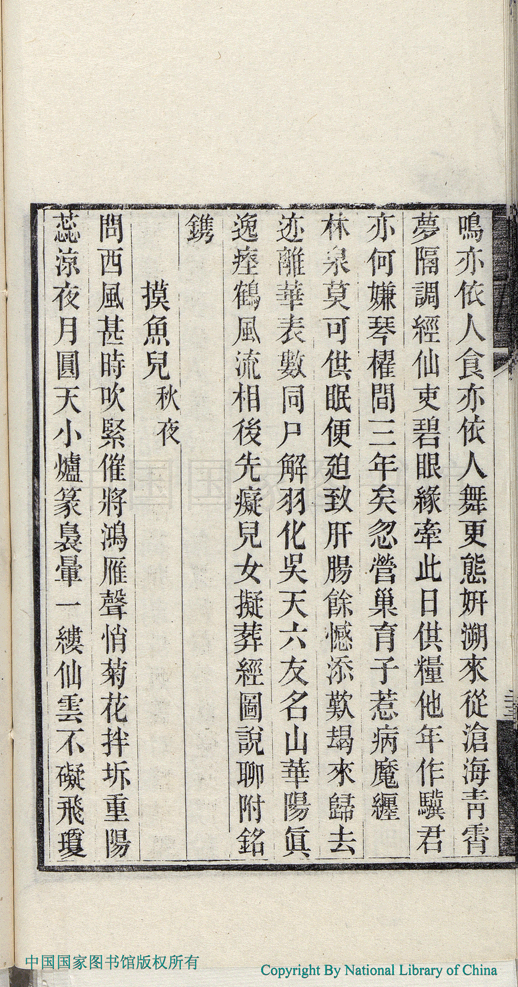 鳴亦依人食亦依人舞更態妍溯來從滄海青霄
夢隔調經仙吏碧眼緣牽此日供糧他年作驥君
亦何嫌琴櫂間三年矣忽營巢育子惹病魔纏
林泉莫可供眠便廵致肝腸餘憾添歎朅來歸去
迹離華表數同尸解羽化吳天六友名山華陽眞
逸瘞鶴風流相後先癡兒女擬葬經圖說聊附銘
鐫
摸魚兒秋夜
問西風甚時吹緊催將鴻雁聲悄菊花拌坼重陽
蕊涼夜月圓天小爐篆裊暈一縷仙雲不礙飛瓊
中国国家图书馆版权所有
Copyright By National Library of China